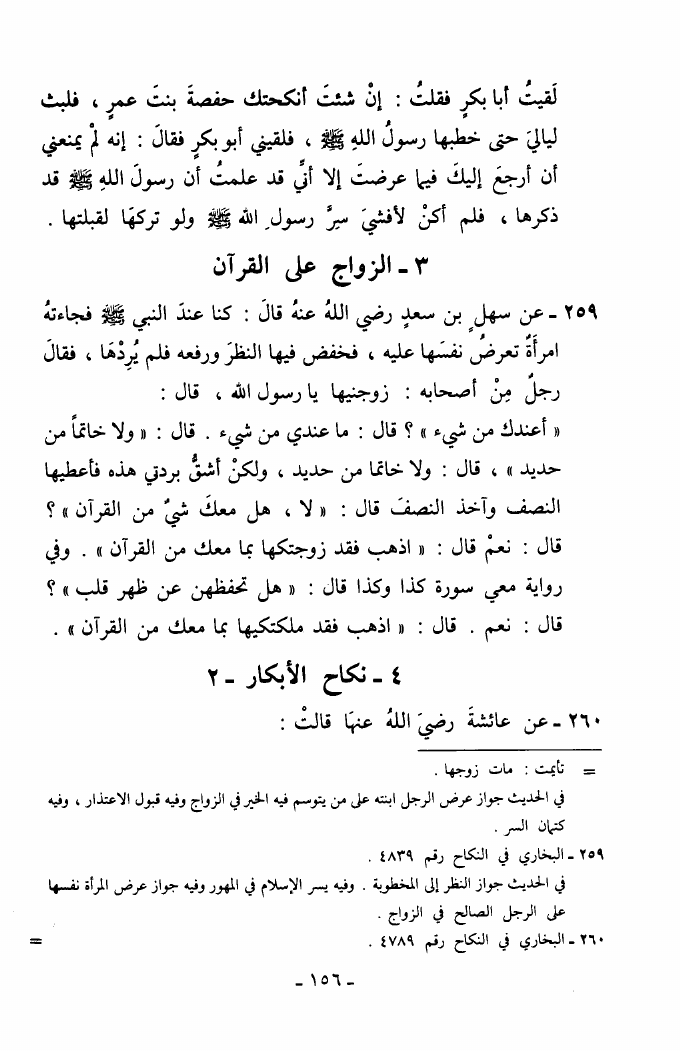 لَقيتُ أبا بكرٍ فقلتُ : إنْ شئتَ أنكحتك حفصةَ بنتَ عمرٍ ، فلبث
لياليَ حتى خطبها رسولُ اللهِ ﷺ ، فلقيني أبو بكرٍ فقالَ : إنه لمْ يمنعني
أن أرجعَ إليكَ فيما عرضتَ إلا أنِّي قد علمتُ أن رسولَ اللهِ ﷺ قد
ذكرها ، فلم أكنْ لأفشيَ سِرَّ رسولِ الله ﷺ ولو تركهَا لقبلتها .
٣ ـ الزواج على القرآن
٢٥٩ ـ عن سهلِ بن سعدٍ رضي اللهُ عنهُ قالَ : كنا عندَ النبي ﷺ فجاءتهُ
امرأَةٌ تعرضُ نفسَها عليه ، فخفض فيها النظرَ ورفعه فلم يُرِدْهَا ، فقالَ
رجلٌ مِنْ أصحابه : زوجنيها يا رسول الله ، قال :
« أعندك من شيء » ؟ قال : ما عندي من شيء . قال : « ولا خاتماً من
حديد » ، قال : ولا خاتما من حديد ، ولكنْ أشقُّ بردتي هذه فأعطيها
النصف وآخذ النصفَ قال : « لا ، هل معكَ شيءٌ من القرآن » ؟
قال : نعمْ قال : « اذهب فقد زوجتكها بما معك من القرآن » . وفي
رواية معي سورة كذا وكذا قال : « هل تحفظهن عن ظهر قلب » ؟
قال : نعم . قال : « اذهب فقد ملكتكيها بما معك من القرآن » .
٤ ـ نكاح الأبكار ـ ٢
٢٦٠ ـ عن عائشةَ رضيَ اللهُ عنهَا قالتْ :
= تأيمت : مات زوجها .
في الحديث جواز عرض الرجل ابنته على من يتوسم فيه الخير في الزواج وفيه قبول الاعتذار ، وفيه
كتمان السر .
٢٥٩ ـ البخاري في النكاح رقم ٤٨٣٩ .
في الحديث جواز النظر إلى المخطوبة . وفيه يسر الإسلام في المهور وفيه جواز عرض المرأة نفسها
على الرجل الصالح في الزواج .
٢٦٠ ـ البخاري في النكاح رقم ٤٧٨٩ . =
ـ ١٥٦ ـ